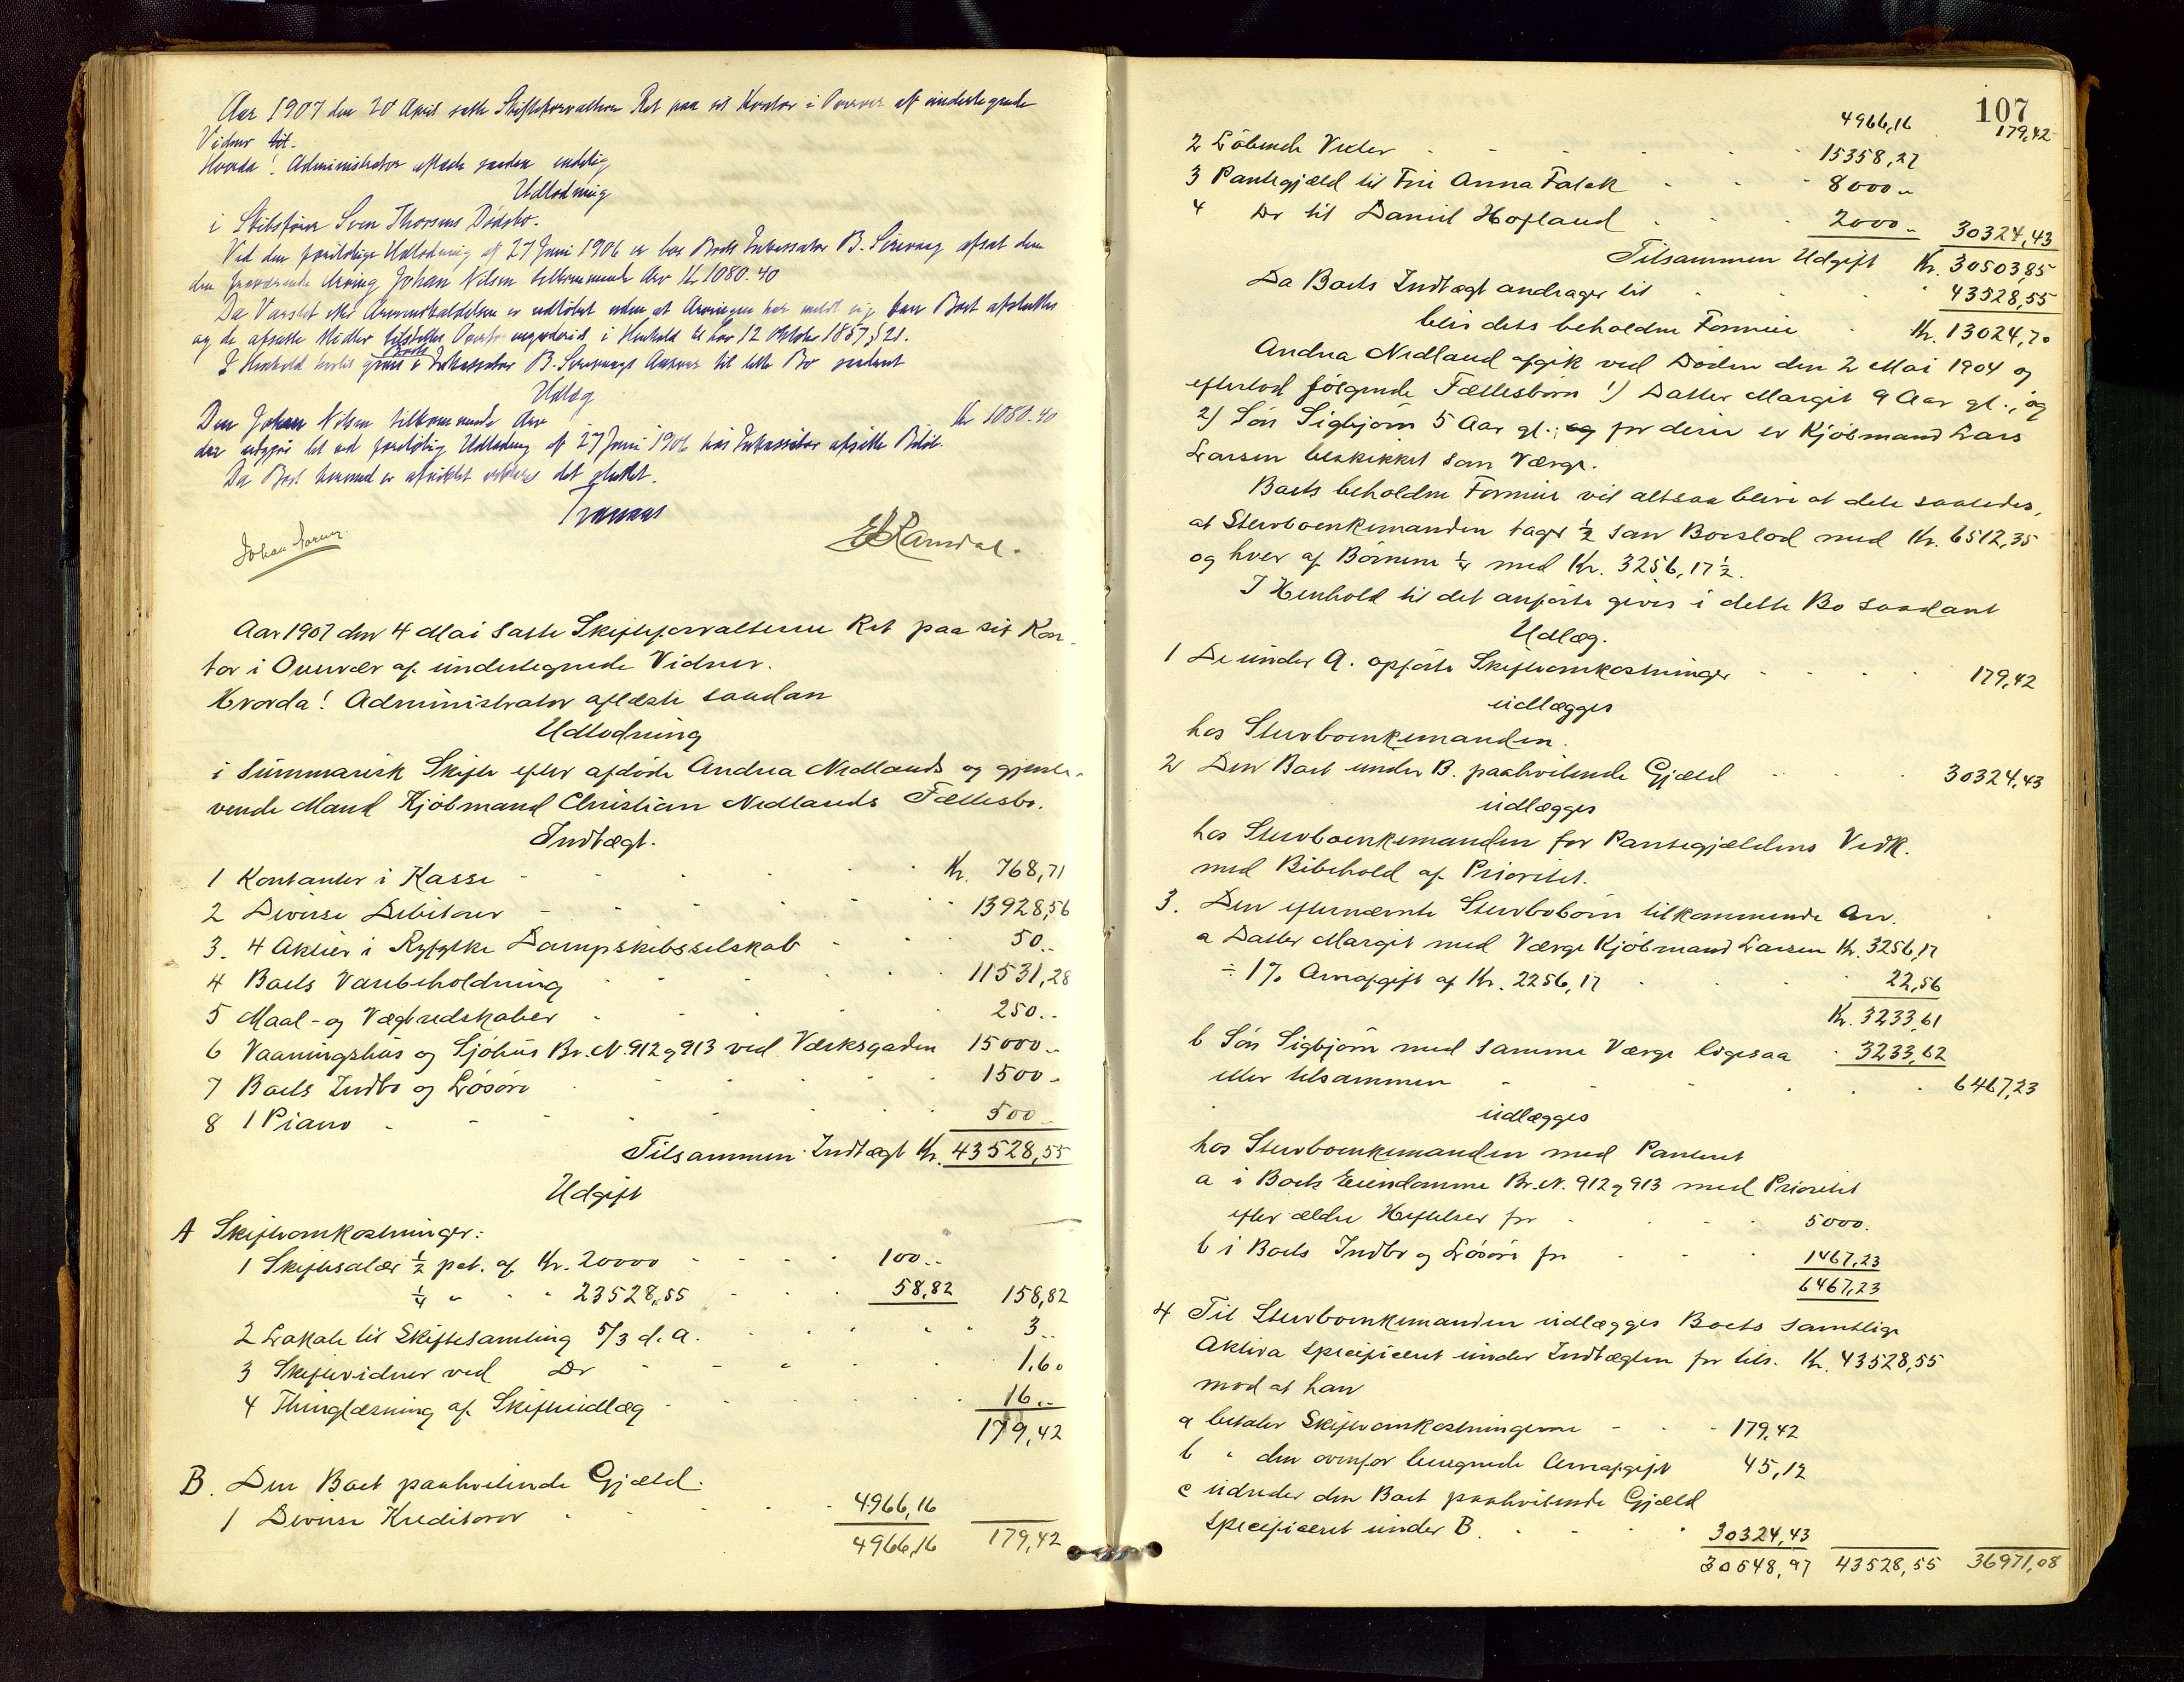 Aar 1907 den 20 April satte Skifteforvalteren Ret paa sit Kontor i Overvær af undertegnede
Vidner til.
Hvorda! Administrator aflæste saadan endelig
Udlodning
i Skibsfører Sven Thorsens Dødsbo.
Ved den foreløbige Udlodning af 27 Juni 1906 er hos Boets Inkassator B. Sirevaag afsat den
den fraværende Arving Johan Nilsen tilkommende Arv Kr 1080.40
Da Varslet efter Arveindkaldelsen er udløbet uden at Arvingen har meldt sig kan Boet afsluttes
og de afsatte Midler tilstilles Overformynderiet i Henhold til Lov 12 Oktober 1857 § 21.
I Henhold hertil gives i Boets Inkassator B. Sirevaags Ansvar til dette Bo saadant
Udlæg
Den Johan Nilsen tilkommende Arv Kr 1080.40
der udgjør det ved foreløbig Udlodning af 27 Juni 1906 hos Inkassator afsatte Beløb.
Da Boet hermed er afviklet erklæres det sluttet.
Johan Sørum
E Ramdal.
Aar 1907 den 4 Mai satte Skifteforvalteren Ret paa sit Kon-
tor i Overvær af undertegnede Vidner.
Hvorda! Administrator aflæste saadan
Udlodning
i summarisk Skifte efter afdøde Andrea Nedlands og gjenle-
vende Mand Kjøbmand Christian Nedlands Fællesbo.
Indtægt.
1 Kontanter i Kasse Kr. 768,71
2 Diverse Debitorer 13928,56
3. 4 Aktier i Ryfylke Dampskibsselskab 50..
4 Boets Varebeholdning 11531,28
5 Maal- og Vægtredskaber 250..
6 Vaaningshus og Sjøhus Br. N. 912 og 913 ved Verksgaden 15000..
7 Boets Indbo og Løsøre 1500-
8 1 Piano 500..
Tilsammen Indtægt Kr. 43528,55
Udgift
A Skifteomkostninger:
1 Skiftesalær ½ pct. af Kr. 20000 100..
¼ " " " 23528,55 58,82 158,82
2 Lokale til Skiftesamling 5/3 d. A. 3..
3 Skiftevidner ved Do 1.60
4 Thinglæsning af Skifteudlæg 16..
179,42
B. Den Boet paahvilende Gjæld.
1 Diverse Kreditorer 4966,16
4966,16 179,42
107
4966,16 179,42
2 Løbende Vexler 15358,27
3 Pantegjæld til Fru Anna Falck 8000..
4 Do til Daniel Hofland 2000.. 30324,43
Tilsammen Udgift Kr. 30503,85
Da Boets Indtægt andrager til 43528,55
blir dets beholdne Formue Kr. 13024,70
Andrea Nedland afgik ved Døden den 2 Mai 1904 og
efterlod følgende Fællesbørn 1) Datter Margit 9 Aar gl., og
2) Søn Sigbjørn 5 Aar gl.; og for disse er Kjøbmand Lars
Larsen beskikket som Værge.
Boets beholdne Formue vil altsaa blive at dele saaledes,
at Stervboenkemanden tager ½ som Boeslod med Kr. 6512,35
og hver af Børnene ¼ med Kr. 3256,17½.
I Henhold til det anførte gives i dette Bo saadant
Udlæg.
1 De under A. opførte Skifteomkostninger 179,42
udlægges
hos Stervboenkemanden.
2 Den Boet under B. paahvilende Gjæld 30324,43
udlægges
hos Stervboenkemanden for Pantegjældens Vedk.
med Bibehold af Prioritet.
3. Den efternævnte Stervbobørn tilkommende Arv.
a Datter Margit med Værge Kjøbmand Larsen Kr. 3256,17
÷ 1% Arveafgift af Kr. 2256,17 22,56
Kr. 3233,61
b Søn Sigbjørn med samme Værge ligesaa 3233,62
eller tilsammen 6467,23
udlægges
hos Stervboenkemanden med Panteret
a i Boets Eiendomme Br. N. 912 og 913 med Prioritet
efter ældre Heftelser for 5000.
b i Boets Indbo og Løsøre for 1467,23
6467,23
4 Til Stervboenkemanden udlægges Boets samtlige
Aktiva specificeret under Indtægten for tils. Kr. 43528,55
mod at han
a betaler Skifteomkostningerne 179,42
b " den ovenfor beregnede Arveafgift 45,12
c udreder den Boet paahvilende Gjæld
specificeret under B. 30324,43
30548,97 43528,55 36971,08